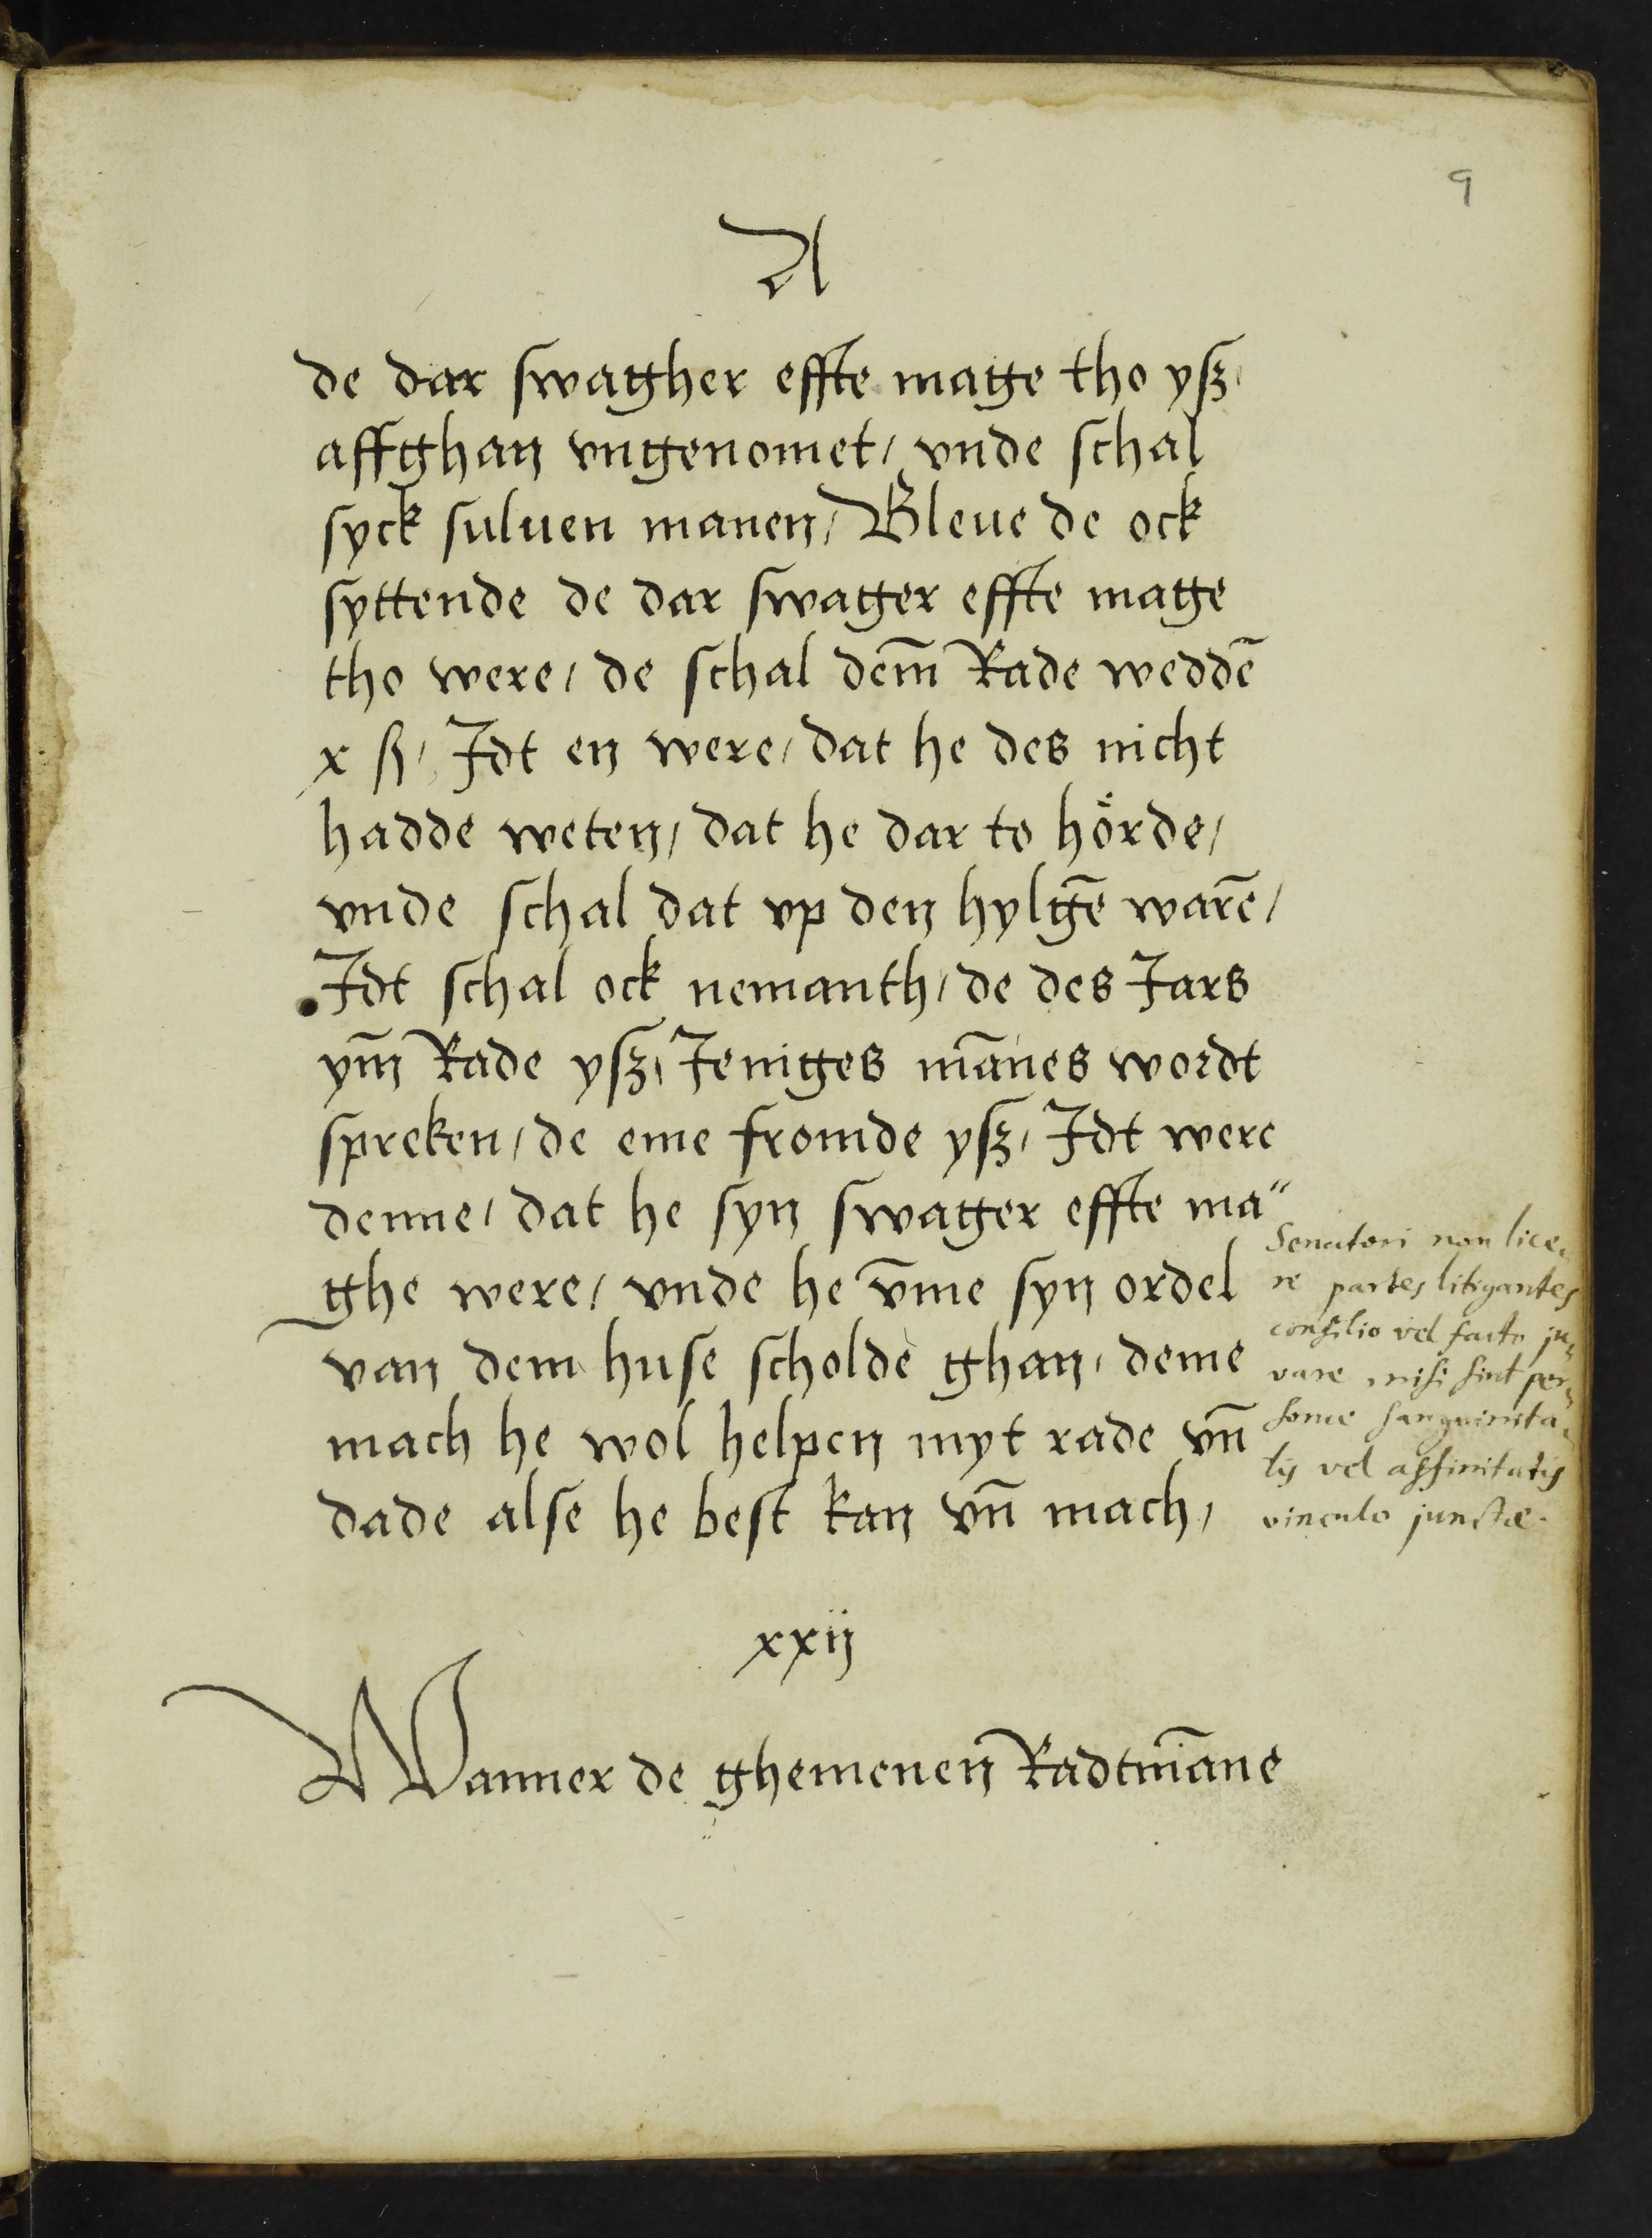 9
A
de dar swagher effte mage tho ysz,
affghan vngenomet, vnde schal
syck suluen manen, Bleue de ock
syttende de dar swager effte mage
tho were, de schal dem̄ Rade weddē
x ß, Idt en were, dat he des nicht
hadde weten, dat he dar to hörde,
vnde schal dat vp den hylgē warē,
Idt schal ock nemanth, de des Jars
ym̄ Rade ysz, Jeniges mānes wordt
spreken, de eme fromde ysz, Idt were
denne, dat he syn swager effte ma"
ghe were, vnde he v̄me syn ordel
van dem huse scholde ghan, deme
mach he wol helpen myt rade vn̄
dade alse he best kan vn̄ mach,
Senatori non lice„
re partes litigantes
consilio vel facto ju„
vare nisi sint per„
sonæ sanguinita„
tis vel affinitatis
vinculo junctæ.
xxij
Wanner de ghemenen̄ Radtmāne